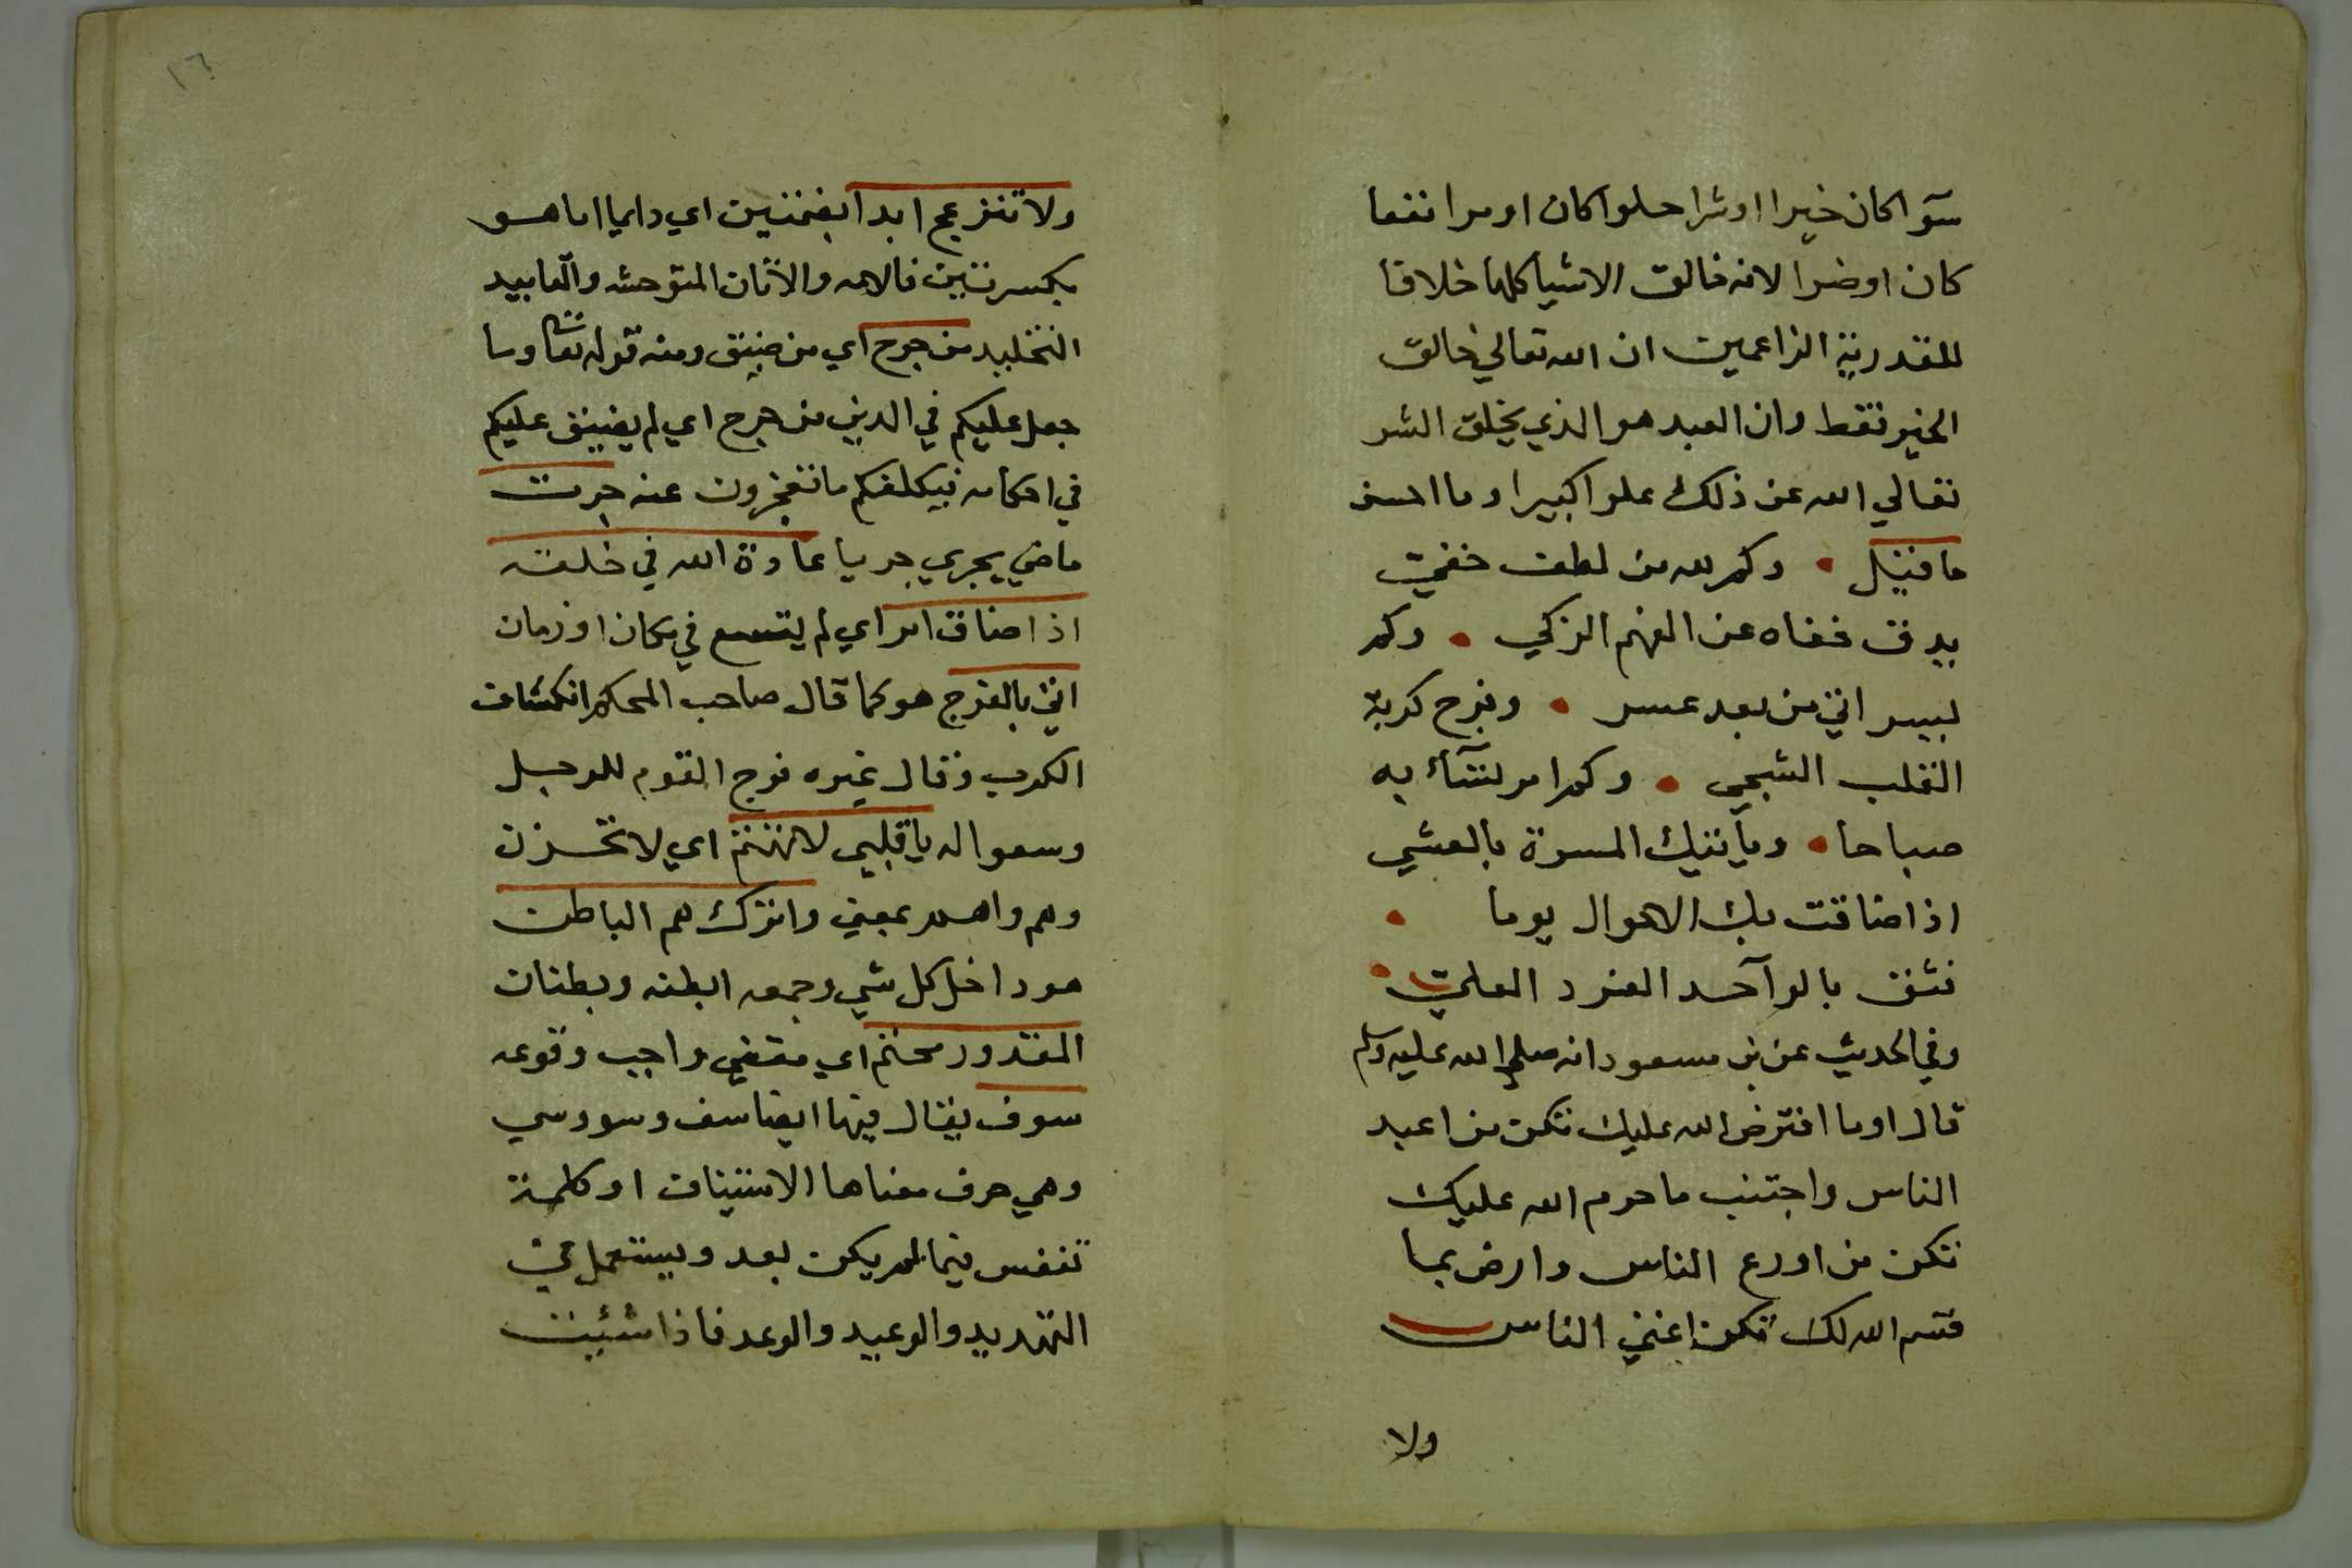 سوآ كان خيرا او شرا حلوا كان او مرا نفعا
كان او ضرا لانه خالق الاشيا كلها خلافا
للقدرية الزاعمين ان الله تعالي خالق
الخير فقط وان العبد هو الذي يخلق الشر
تعالي الله عن ذلك علوا كبيرا وما احسن
ما قيل • وكم لله من لطف خفي
يدق خفاه عن الفهم الزكي • وكم
يسر اتي من بعد عسر • وفرج كربة
القلب الشجي • وكم امر تسآء به
صباحا • ويأتيك المسرة بالعشي
اذا ضاقت بك الاحوال يوما •
فثق بالوآحد الفرد العلي •
وفي الحديث عن بن مسعود انه صلي الله عليه وسلم
قال اد ما افترض الله عليك تكن من اعبد
الناس واجتنب ما حرم الله عليك
تكن من اورع الناس وارض بما
قسم الله لك تكن اغني الناس
ولا
١٦
ولا تنزعج ابدا بفتحتين اي دايما اما هو
بكسرتين فالامه والاتان المتوحشه والتابيد
التخليد من حرج اي من ضيق ومنه قوله تعا وما
جعل عليكم في الدين من حرج اي لم يضيق عليكم
في احكامه فيكلفكم ما تعجزون عنه جرت
ماضي يجري جريا عادة الله في خلقه
اذا ضاق امر اي لم يتسع في مكان او زمان
اتي بالفرج هو كما قال صاحب المحكم انكشاف
الكرب وقال غيره فرج القوم للرجل
وسعوا له يا قلبي لا تهتم اي لا تحزن
وهم واهم بمعني واترك هم الباطن
هو داخل كل شي وجمعه ابطنه وبطنان
المقدور محتم اي مقضي واجب وقوعه
سوف يقال فيها ايضا سف وسو وسي
وهي حرف معناها الاستيناف او كلمة
تنفس فيما لم يكن بعد ويستعمل في
التهديد والوعيد والوعد فاذا شئت